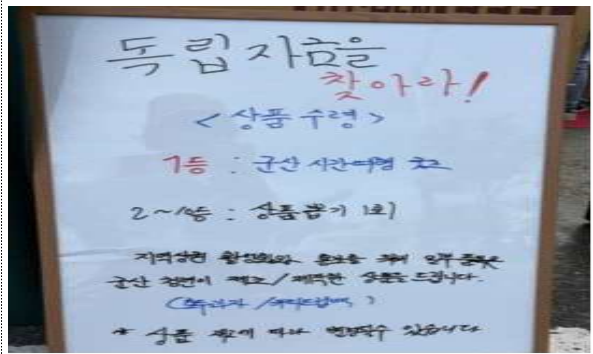 독립자금을
찾아라!
<상품수령>
1등 : 군산 시간여행
2~10등 : 상품뽑기 1회
지역상권 활성화와 홍보를 위해 일부품목은
군산 청년이 제조/제작한 상품을 드립니다.
* 상품 재고에 따라 변경될수 있습니다